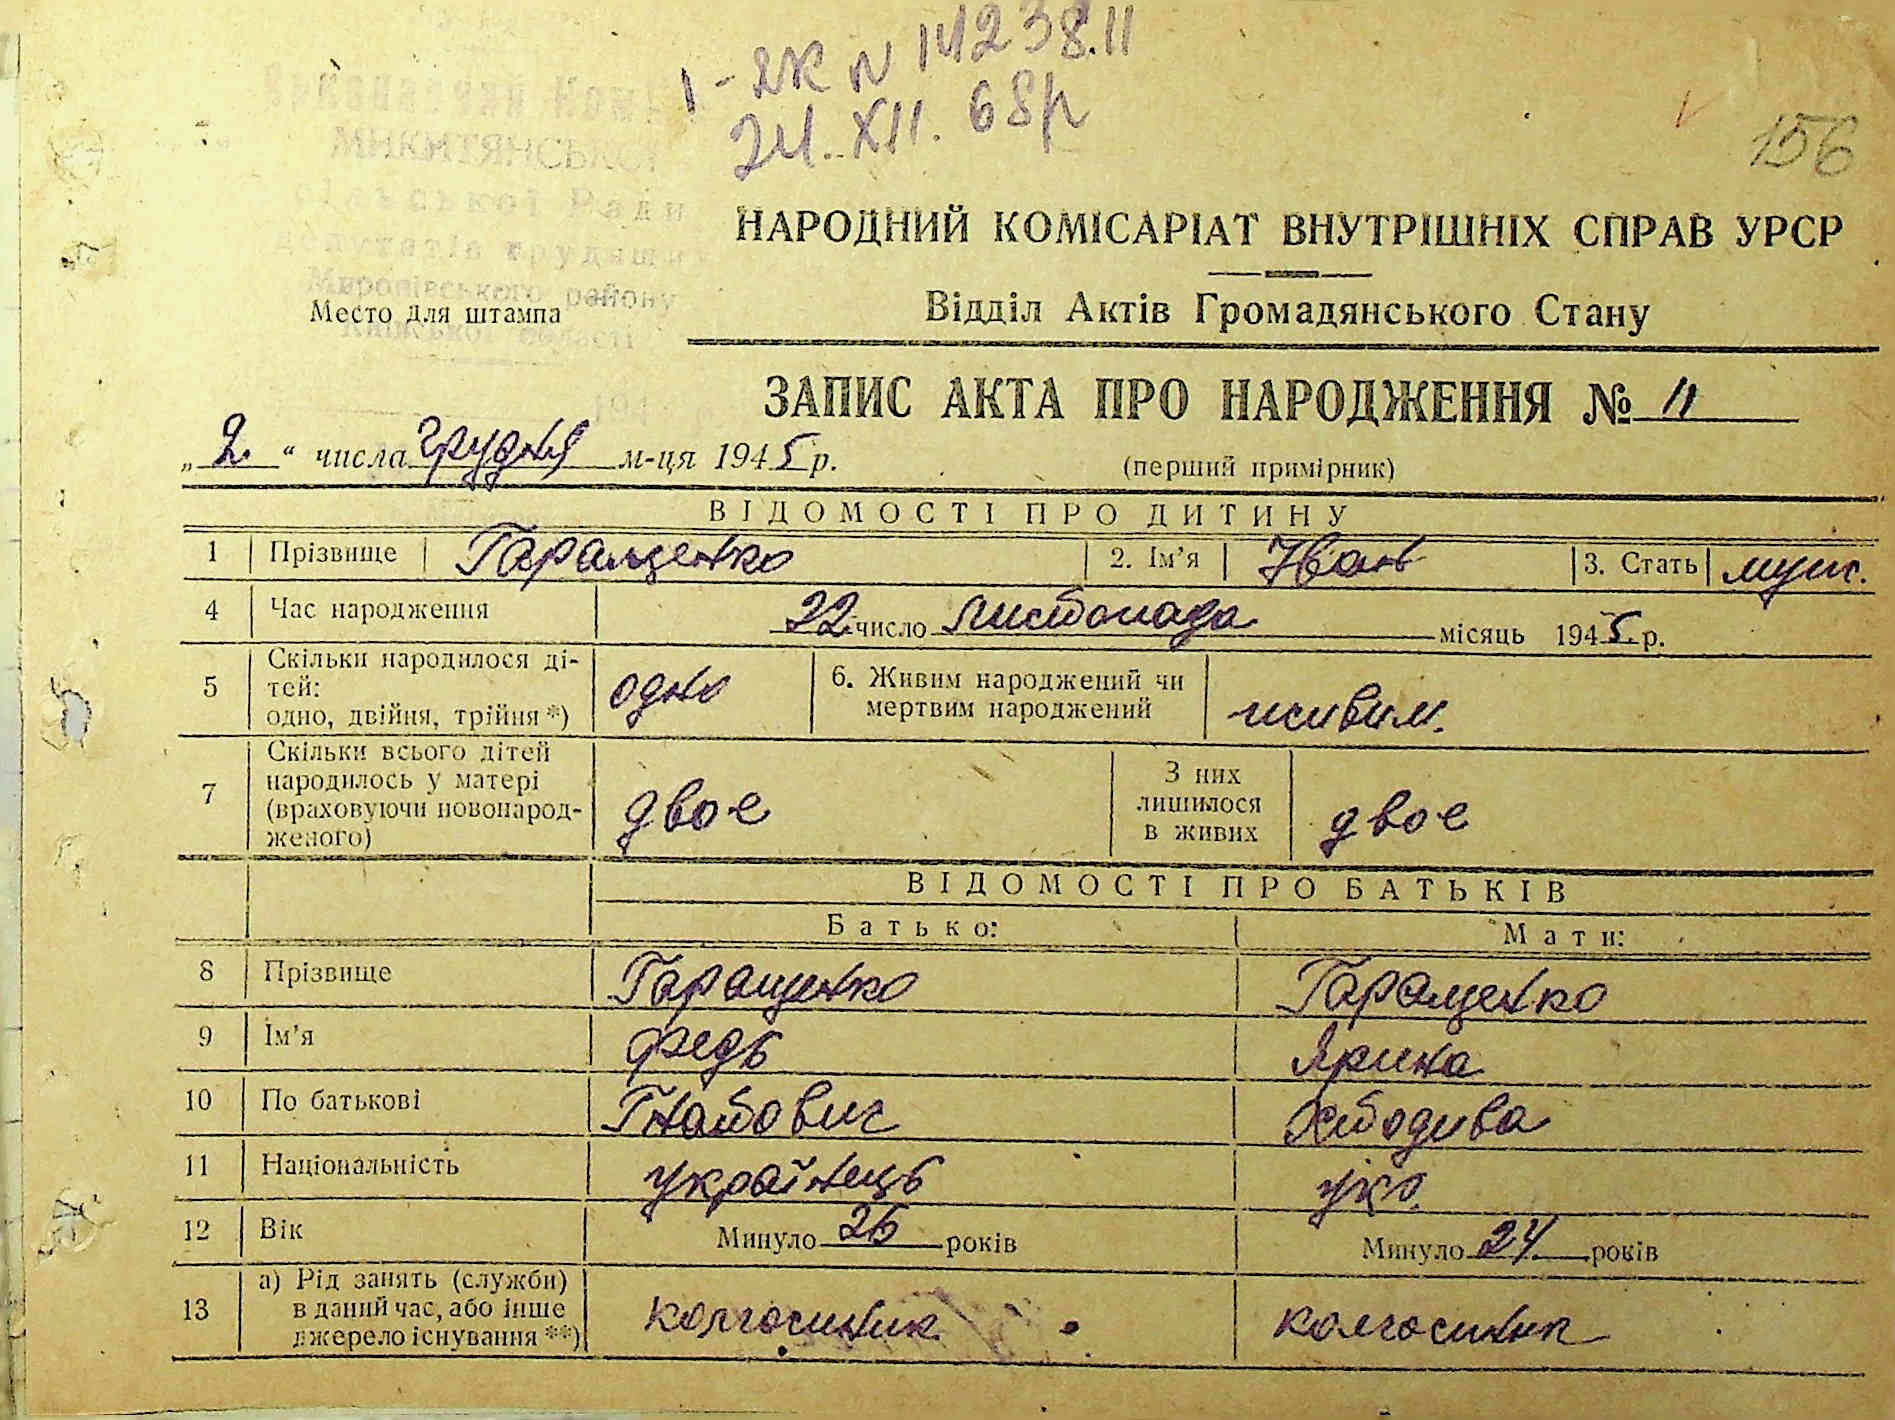 I - ЯК N 14238.11
24. XII. 68р
156
МИКИТЯНСЬКОЇ
сільської Ради
депутатів трудящих
Миронівського району
Київської області
Место для штампа
НАРОДНИЙ КОМІСАРІАТ ВНУТРІШНІХ СПРАВ УРСР
Відділ Актів Громадянського Стану
ЗАПИС АКТА ПРО НАРОДЖЕННЯ № 11
„2“ числа грудня м-ця 1945 р.
(перший примірник)
ВІДОМОСТІ ПРО ДИТИНУ
1 Прізвище Гаращенко 2. Ім’я Іван 3. Стать муж.
4 Час народження 22 число листопада місяць 1945 р.
5 Скільки народилося ді-
тей:
одно, двійня, трійня *) одно
6. Живим народжений чи
мертвим народжений живим.
7 Скільки всього дітей
народилось у матері
(враховуючи новонарод-
женого) двое
З них
лишилося
в живих двое
ВІДОМОСТІ ПРО БАТЬКІВ
Батько: Мати:
8 Прізвище Гаращенко Гаращенко
9 Ім’я Федь Ярина
10 По батькові Гнатович
11 Національність українець укр.
12 Вік Минуло 26 років Минуло 24 років
13 а) Рід занять (служби)
в даний час, або інше
джерело існування **) колгоспник колгоспник